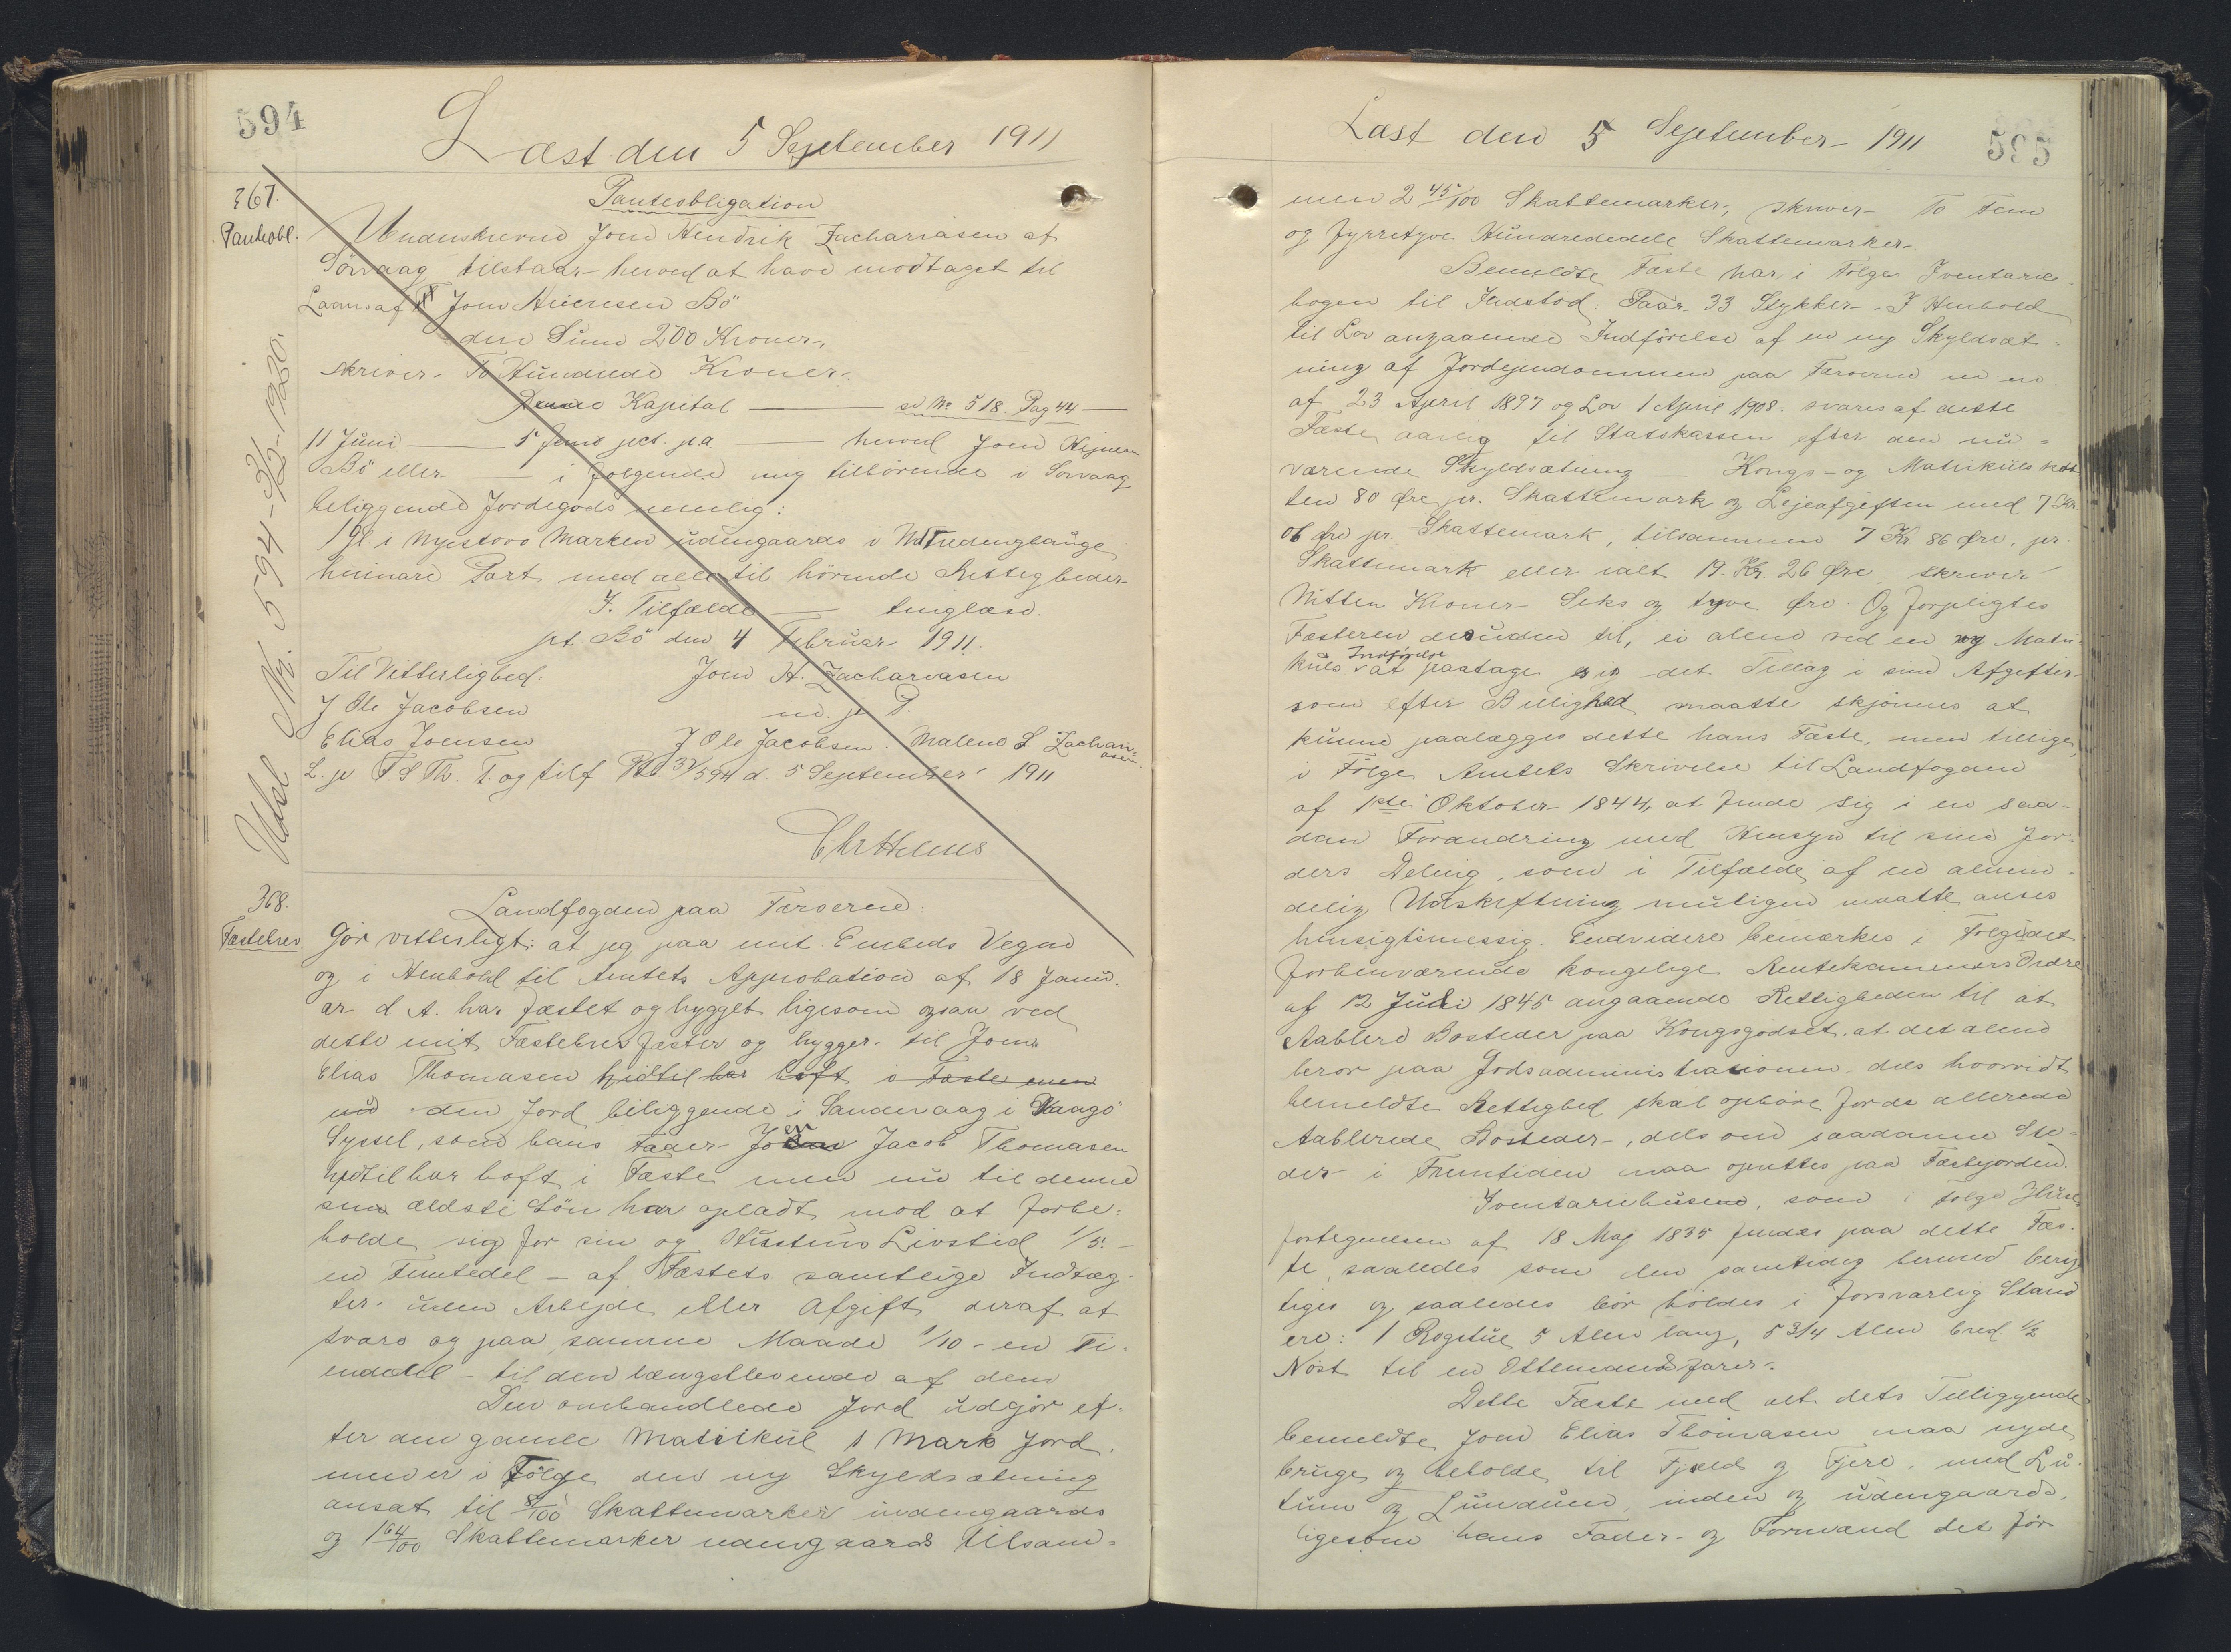 594
Læst den 5 September 1911
367.
Panteobl.
Panteobligation
Undenskrevne Joen Hendrik Zachariasen af
Sörvaag tilstaar herved at have modtaget til
Laans af Joen Heinesen Bö
den Sum 200 Kroner,
skriver To Hundrede Kroner.
Denne Kapital — se No 518 Pag 44 —
11 Juni — 5 fem pct. p.a. — herved Joen Hejnesen
Bö eller — i følgende mig tilhörende i Sörvaag
beliggende Jordegods nemlig:
1 Gl. i Nyestovo Marken udengaards i
heimare Part med alle til hörende Rettigheder
I. Tilfælde — tinglæse.
pt Bö den 4 Februar 1911.
Til Vitterlighed. Joen H. Zachariasen
J Ole Jacobsen m. p. P.
Elias Joensen J Ole Jacobsen. Malene S Zachari=
asen.
L. p F S Th. T. og tilf Pto 32/594 d. 5 September 1911
Udsl Nr. 594-1920.
368.
Fæstebrev
Landfogden paa Færøerne:
Gör vitterligt: at jeg paa mit Embeds Vegne
og i Henhold til Amtets Approbation af 18 Janu-
ar d. A. har fæstet og bygget ligesom ogsaa ved
dette mit Fæstebrev fæster og bygger til Joen
Elias Thomasen hidtil har haft i Fæste men
nu den Jord beliggende i Sandevaag i Vaagö
Syssel, som hans Fader Joen Jacob Thomasen
hidtil har haft i Fæste men nu til denne
sin ældste Sön har opladt mod at forbe-
holde sig for sin og Hustrus Livstid 1/5 -
en Femtedel - af Fæstets samtlige Indtæg-
ter uden Arbejde eller Afgift deraf at
svare og paa samme Maade 1/10 - en Ti-
endedel - til den længstlevende af dem
Den omhandlede Jord udgjör ef-
ter den gamle Matrikul 1 Mark Jord,
men er i Fölge den ny Skyldsætning
ansat til 81/100 Skattemarker indengaards
og 1 64/100 Skattemarker udengaards tilsam=
Læst den 5 September 1911
595
men 2 45/100 Skattemarker, skriver To Fem
og fyrretyve Hundrededele Skattemarker.
Bemeldte Fæste har i Fölge Inventarie-
bogen til Indstöd: Faar 33 Stykker - I Henhold
til Lov angaaende Indförelse af en ny Skyldsæt-
ning af Jordejendommen paa Færøerne m m
af 23 April 1897 og Lov 1 April 1908 svares af dette
Fæste aarlig til Statskassen efter den nu=
værende Skyldsætning — Kongs- og Matrikulsskat
ten 80 Øre pr. Skattemark og Lejeafgiften med 7 Kr.
06 Øre pr. Skattemark, tilsammen 7 Kr 86 Øre, pr.
Skattemark eller ialt 19. Kr. 26 Øre skriver
Nitten Kroner Seks og tyve Øre. Og forpligtes
Fæsteren desuden til, ei alene ved en ny Matri-
Indförelse
kuls at paatage sig det Tillæg i sine Afgifter
som efter Billighed maatte skjönnes at
kunne paalægges dette hans Fæste, men tillige,
i Fölge Amtets Skrivelse til Landfogden
af 1ste Oktober 1844, at finde sig i en saa-
dan Forandring med Hensyn til sine Jor-
ders Deling, som i Tilfælde af en almin-
delig Udskiftning muligen maatte anses
hensigtsmessig. Endvidere bemærkes i Fölge det
forhenværende kongelige Rentekammers Ordre
af 12 Juli 1845 angaaende Rettigheden til at
Aablere Bosteder paa Kongsgodset, at det alene
beror paa Godsadministrationen, dels hvorvidt
bemeldte Rettighed skal ophöre for de allerede
Aablerede Bosteder, dels om saadanne Ste=
der i Fremtiden maa oprettes paa Fæstejorden.
Inventariehusene, som i Fölge Huse
fortegnelsen af 18 Maj 1835 findes paa dette Fæs-
te, saaledes som den samtidig hermed berig
tiges og saaledes bör holdes i forsvarlig Stand
ere: 1 Rogstue 5 Alen lang, 5 3/4 Alen bred. 1/2
Nöst til en Ottemandsfarer.
Dette Fæste med alt dets Tilliggende
bemeldte Joen Elias Thomasen maa nyde
bruge og beholde til Fjeld og Fjere, med Lu-
tum og Lundum, inden og udengaards,
ligesom hans Fader og Formænd det för